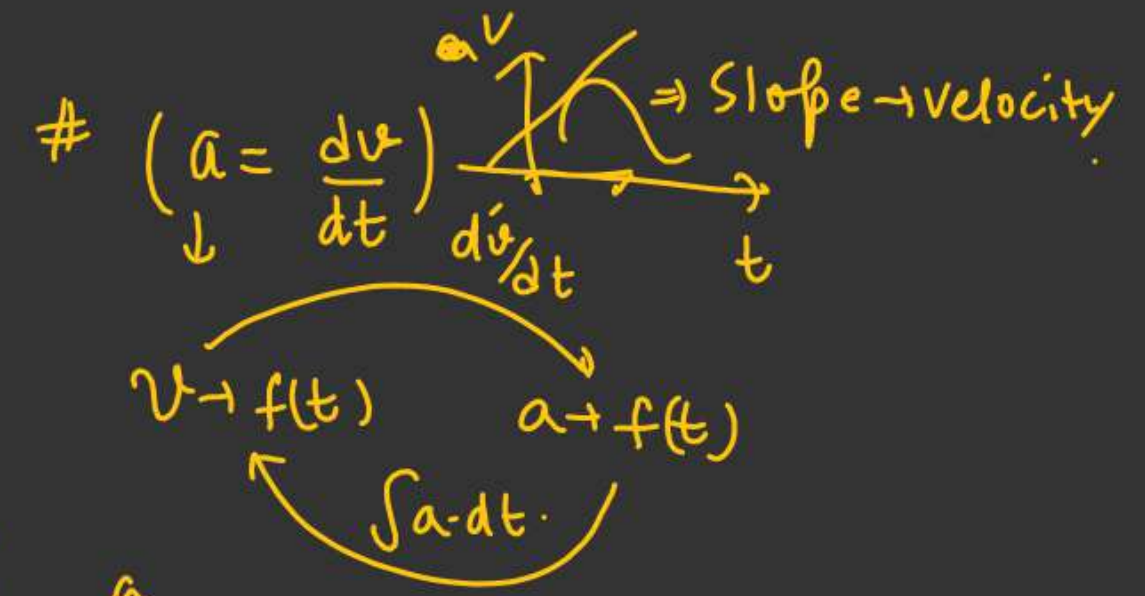 V
# (a = dv/dt) ⇒ Slope → velocity
↓ dv/dt t
v → f(t) a → f(t)
∫a·dt.
a